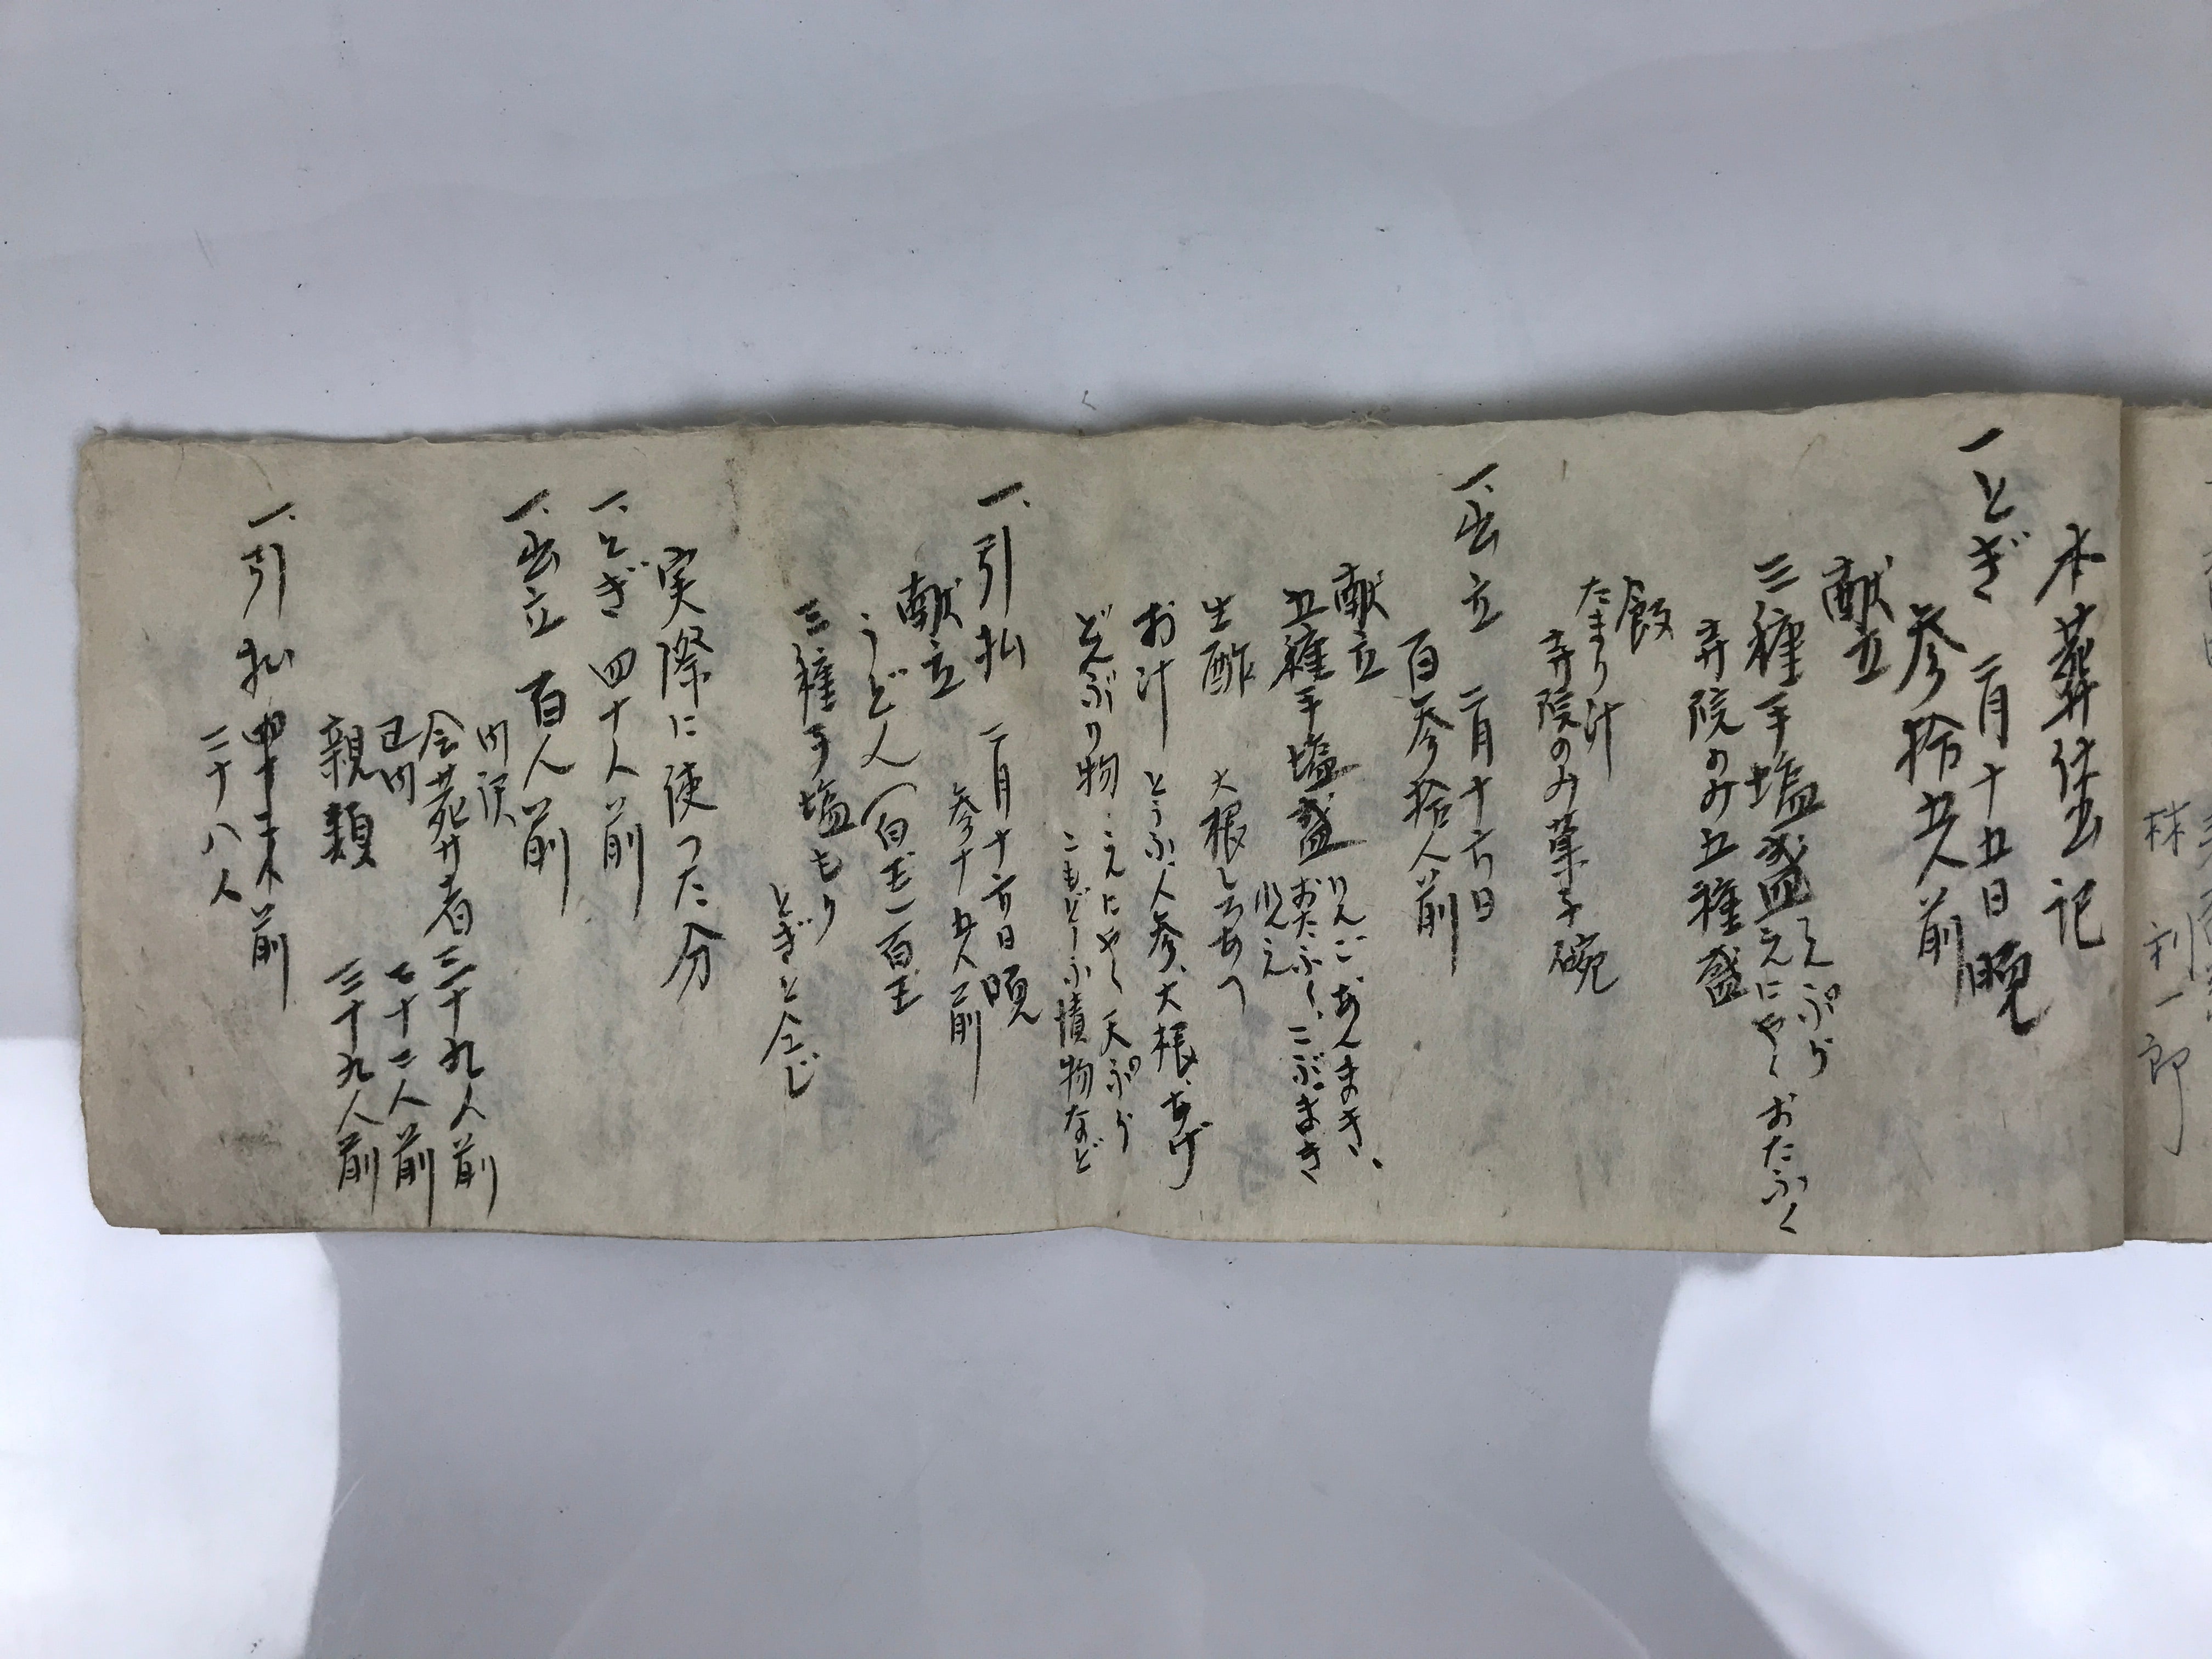 株利一郎
本葬儀出記
一とぎ 二月十五日晩
参拾五人前
献立
三種手塩盛 てんぷら
えにやく おたふく
寺院のみ五種盛
飯
たまり汁
寺院のみ菓子碗
一、出立 二月十六日
百参拾人前
献立
五種手塩盛 りんご、あんまき、
おたふく、こぶまき
生酢 大根しらあへ
お汁 とうふ、人参、大根、あげ
どんぶり物 こんにやく 天ぷら
こもどーふ 漬物など
一、引払 二月十六日晩
参十五人前
献立
うどん(百玉)一百玉
三種手塩もり
とぎと仝じ
実際に使つた分
一、とぎ 四十人前
一、出立 百人前
内訳
会葬者 三十九人前
親類 三十九人前
一、引払
三十八人